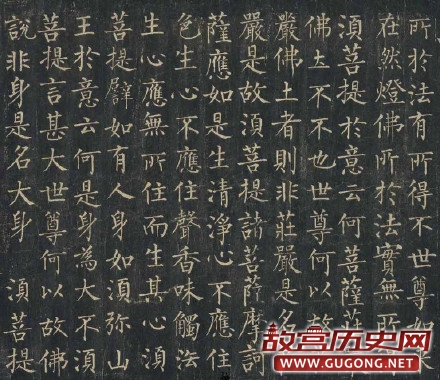 所於法有所得不世尊如來
在然燈佛所於法實無所
須菩提於意云何菩薩莊
佛土不不也世尊何以故
嚴佛土者則非莊嚴是名
嚴是故須菩提諸菩薩摩訶
薩應如是生清淨心不應住
色生心不應住聲香味觸法
生心應無所住而生其心須
菩提譬如有人身如須弥山
王於意云何是身為大不須
菩提言甚大世尊何以故佛
說非身是名大身 須菩提
故宫历史网
WWW.GUGONG.NET